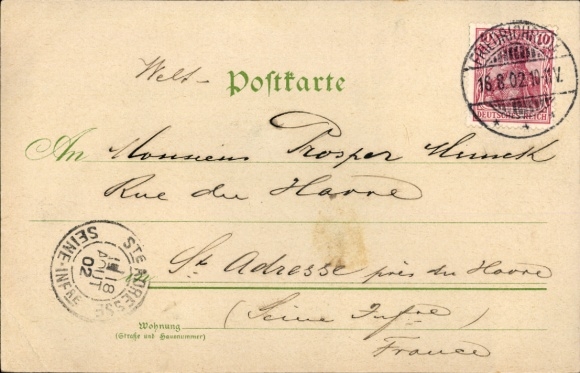 Welt-Postkarte
10
DEUTSCHES REICH
16.8.02.10-11V.
An Monsieur Prosper
Rue du Havre
Ste ADRESSE
SEINE-INFRE
18
AOUT
02
St Adresse près du Havre
(Seine Infre)
France
Wohnung
(Straße und Hausnummer)